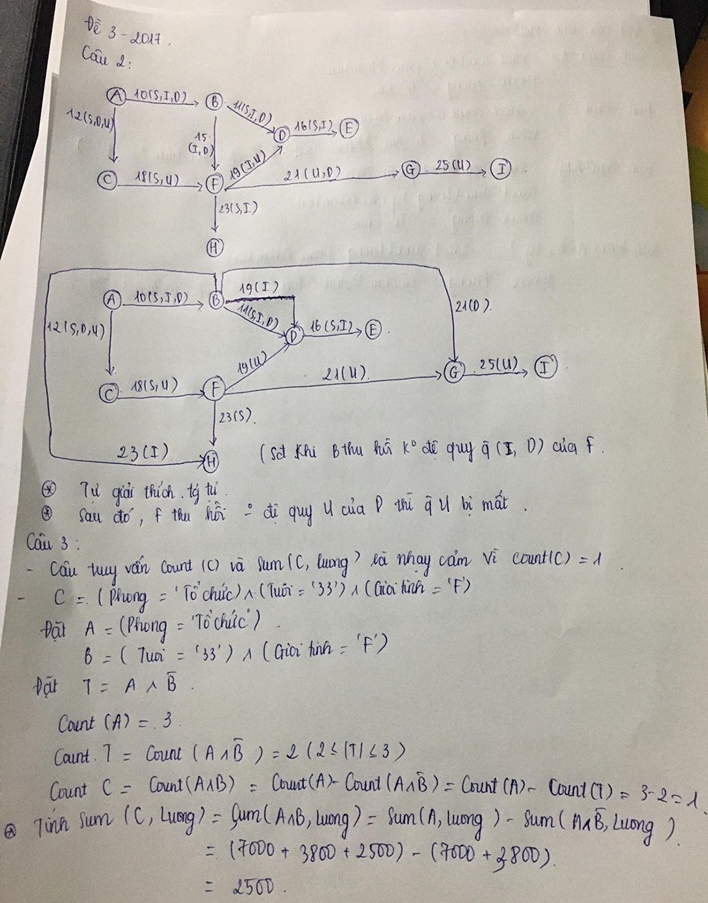 Đề 3 - 2017.
Câu 2:
A 10(S,I,D) B 11(S,I,D) D 16(S,I) E
12(S,D,U) 15 (I,D) 19(I,U)
C 18(S,U) F 21(U,D) G 25(U) I
23(S,I)
H
19(I)
A 10(S,I,D) B 11(S,I,D) D 16(S,I) E
12(S,D,U) 19(U) 21(D).
C 18(S,U) F 21(U) G 25(U) I
23(S).
23(I) H (Sơ khi B thu hồi ko đệ quy q̃ (I, D) của F.
⊛ Tự giải thích
⊛ Sau đó, F thu hồi đệ quy U của D thì q̃ U bị mất.
Câu 3:
- Câu truy vấn Count (C) và Sum (C, lương) là nhạy cảm vì count(C) = 1
- C = (Phong = 'Tổ chức') ∧ (Tuổi = '33') ∧ (Giới tính = 'F')
Đặt A = (Phong = 'Tổ chức').
B = ( Tuoi = '33') ∧ (Giới tính = 'F')
Đặt T = A ∧ B̄.
Count (A) = 3
Count T = Count (A∧B̄) = 2 (2 ≤ |T| ≤ 3)
Count C = Count(A∧B) = Count(A) - Count(A∧B̄) = Count(A) - Count(T) = 3-2=1.
⊛ Tính Sum (C, Lương) = Sum(A∧B, lương) = Sum(A, lương) - Sum(A∧B̄, Lương)
= (7000 + 3800 + 2500) - (7000 + 3800).
= 2500.